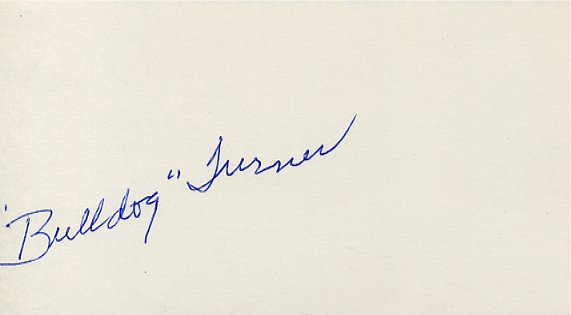 "Bulldog" Turner